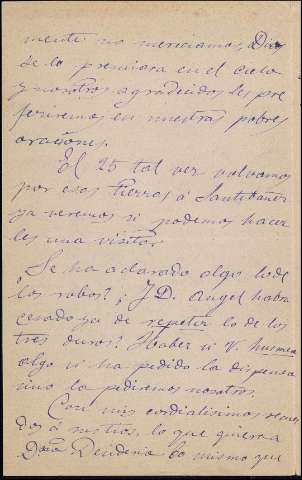 mente no mereciamos, Dios
se lo premiara en el cielo
y nosotros agradecidos les pre
feriremos en nuestras pobres
oraciones.
El 25 tal vez volvamos
por esas tierras á Santibañez
ya veremos si podemos hacer
les una visita.
¿Se ha aclarado algo lo de
los robos? ¿Y D. Angel habra
cesado ya de repetir lo de los
tres duros? Haber si V. husmea
algo si ha pedido la dispensa
sino la pediremos nosotros.
Con mis cordialisimos recuer
dos á sus tios, lo que quiera a
Doña Desideria lo mismo que